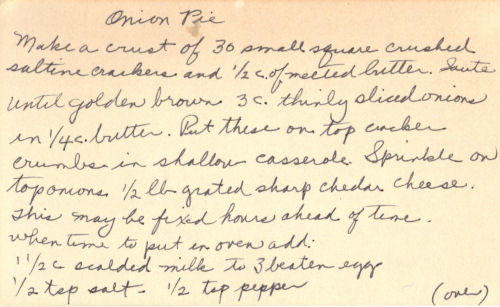 Onion Pie
Make a crust of 30 small square crushed
saltine crackers and 1/2 c. of melted butter. Saute
until golden brown 3 c. thinly sliced onions
in 1/4 c. butter. Put these on top cracker
crumbs in shallow casserole. Sprinkle on
top onions 1/2 lb grated sharp chedar cheese.
This may be fixed hours ahead of time.
When time to put in oven add:
1 1/2 c scalded milk to 3 beaten egg
1/2 tsp salt - 1/2 tsp pepper (over)